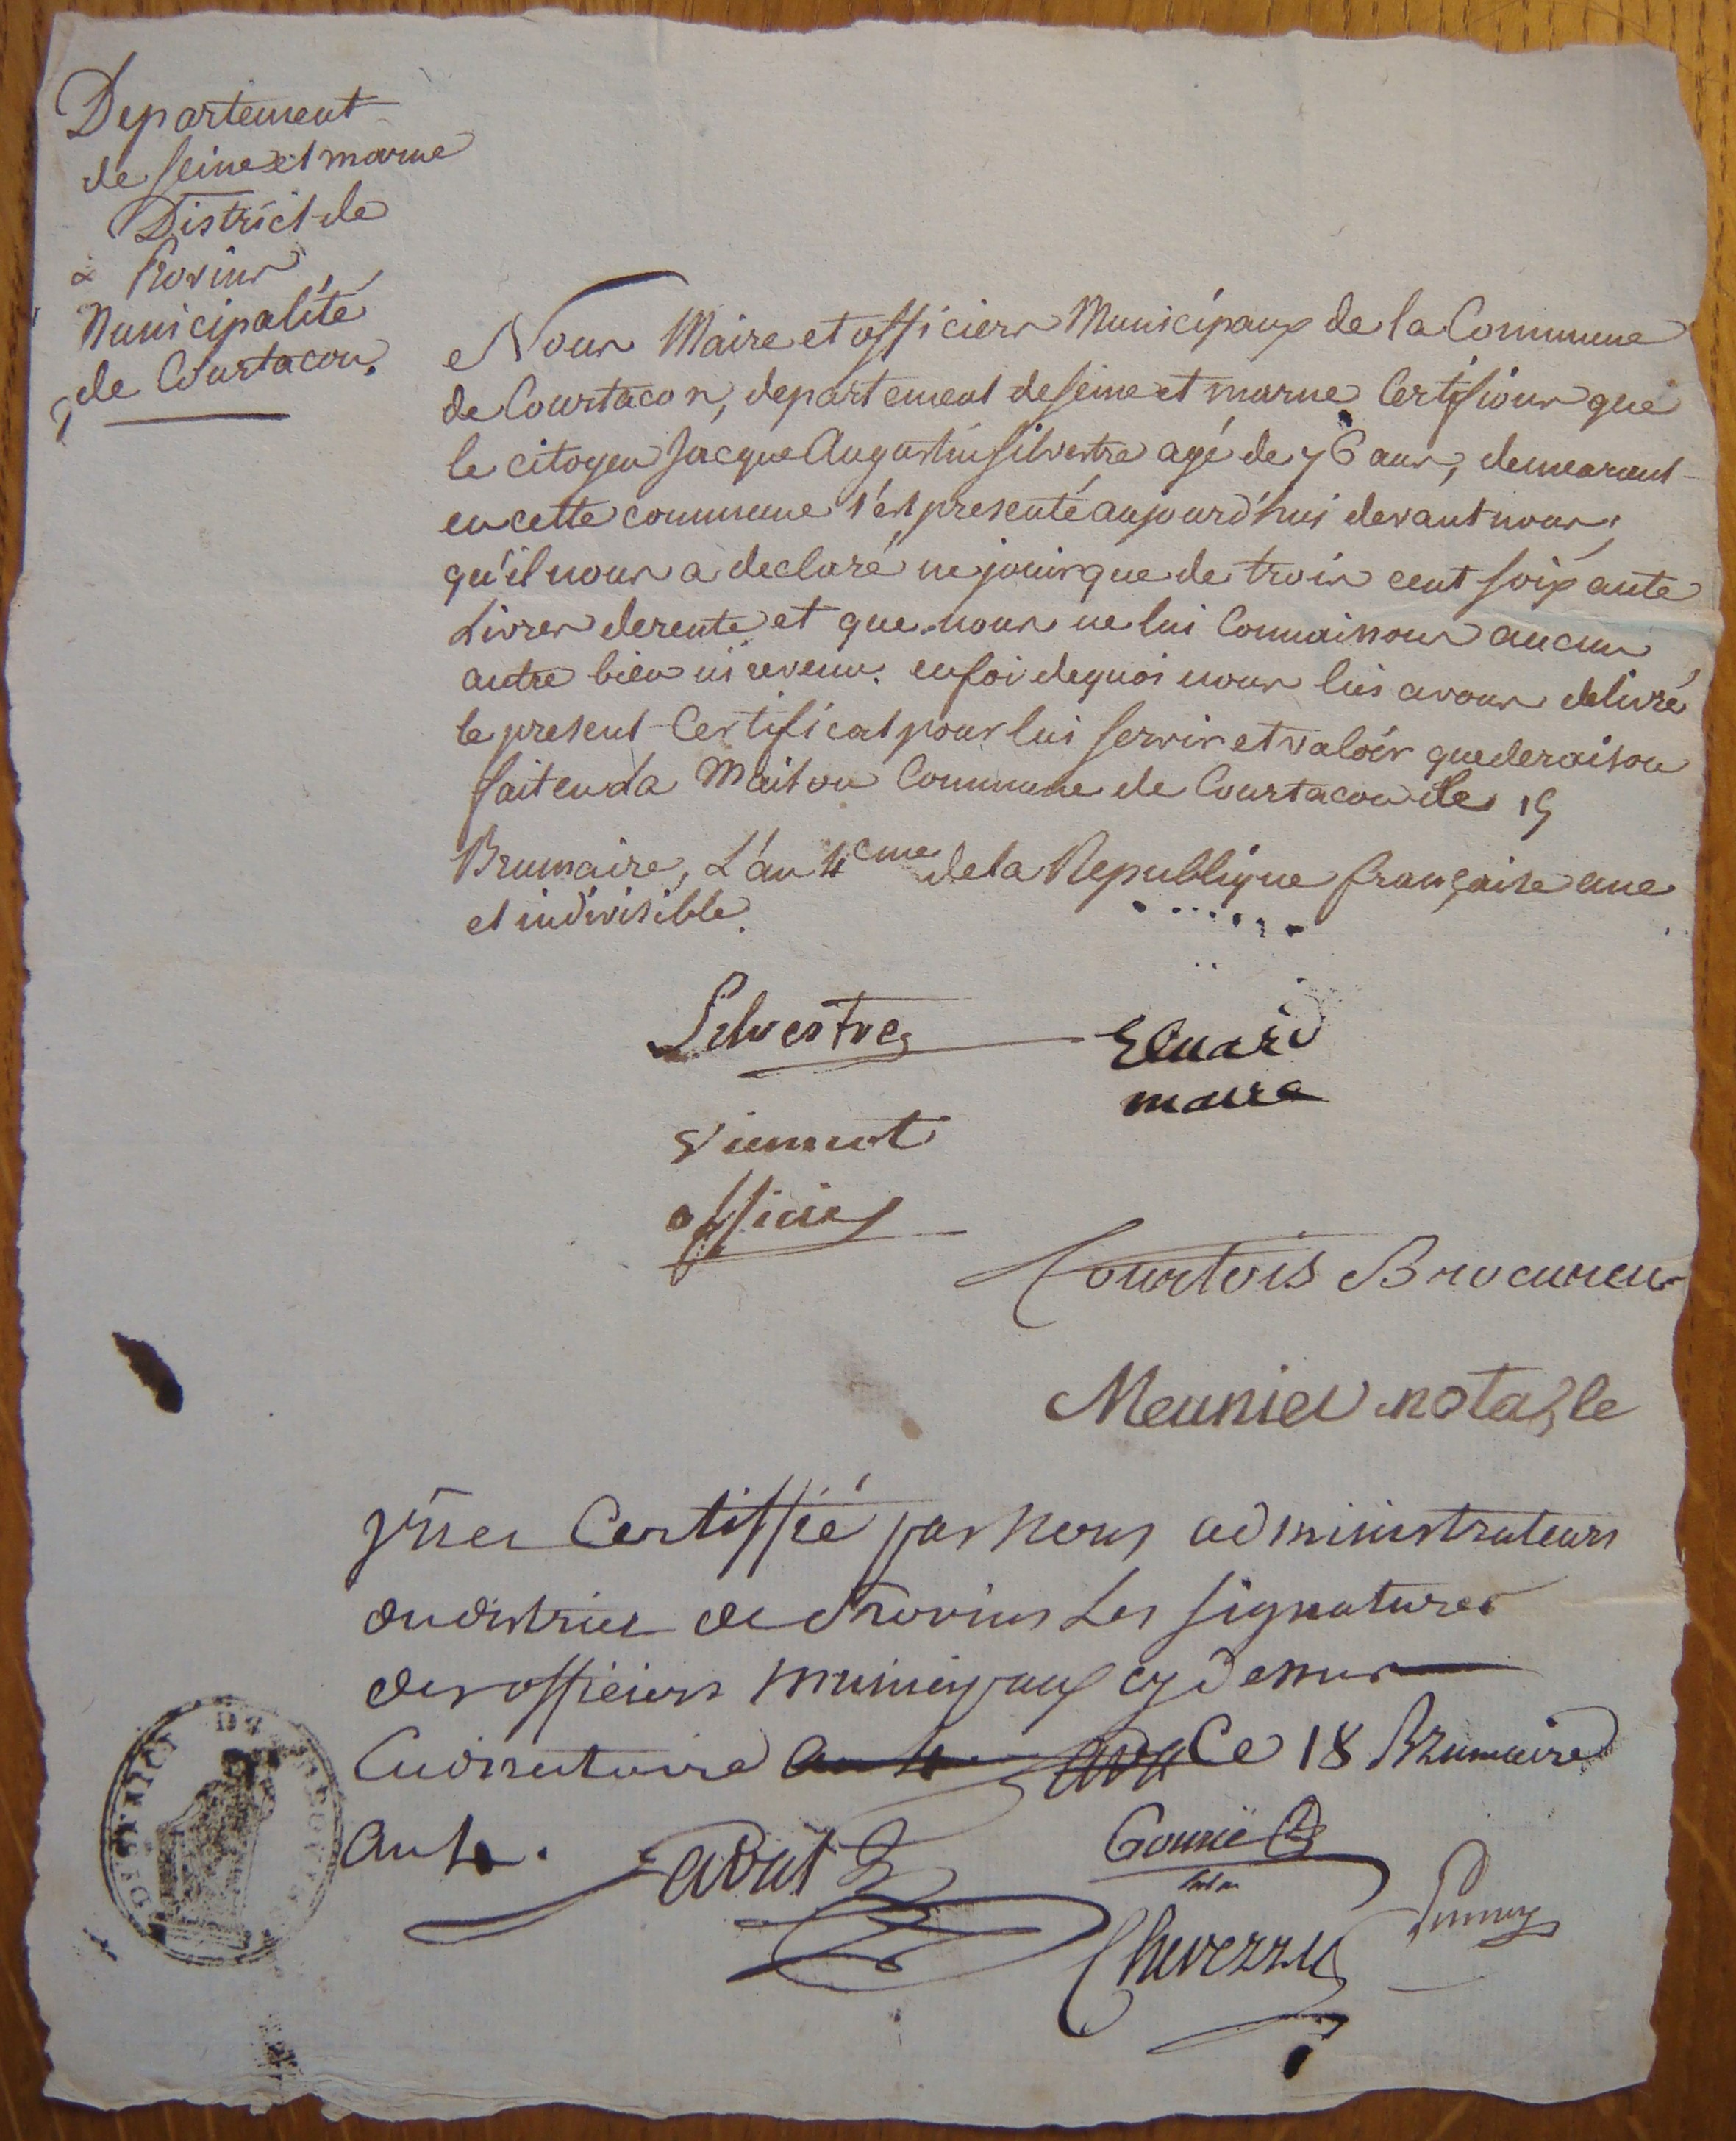 Departement
de seine et marne
District de
Provins
Municipalité
de Courtacon.
Nous Maire et officiers Municipaux de la Commune
de Courtacon, departement de seine et marne Certifions que
le citoyen Jacque Augustin silvestre agé de 76 ans, demeurant
en cette commune s'est presenté aujourd'hui devant nous;
qu'il nous a declaré ne jouir que de trois cent soixante
Livres de rente et que nous ne lui Connaissons aucun
autre bien ni revenu. en foi de quoi nous lui avons delivré
le present Certificat pour lui servir et valoir que de raison
fait en la Maison Commune de Courtacon le 15
Brumaire, L'an 4eme de la Republique française une
et indivisible.
Silvestre
Eluard
maire
Viennot
officier
Courtois Brocureur
Meunier notable
Certiffié par Nous administrateurs
du district de Provins Les signatures
des officiers municipaux cy dessus
Ce 18 Brumaire
an 4.
DISTRICT DE